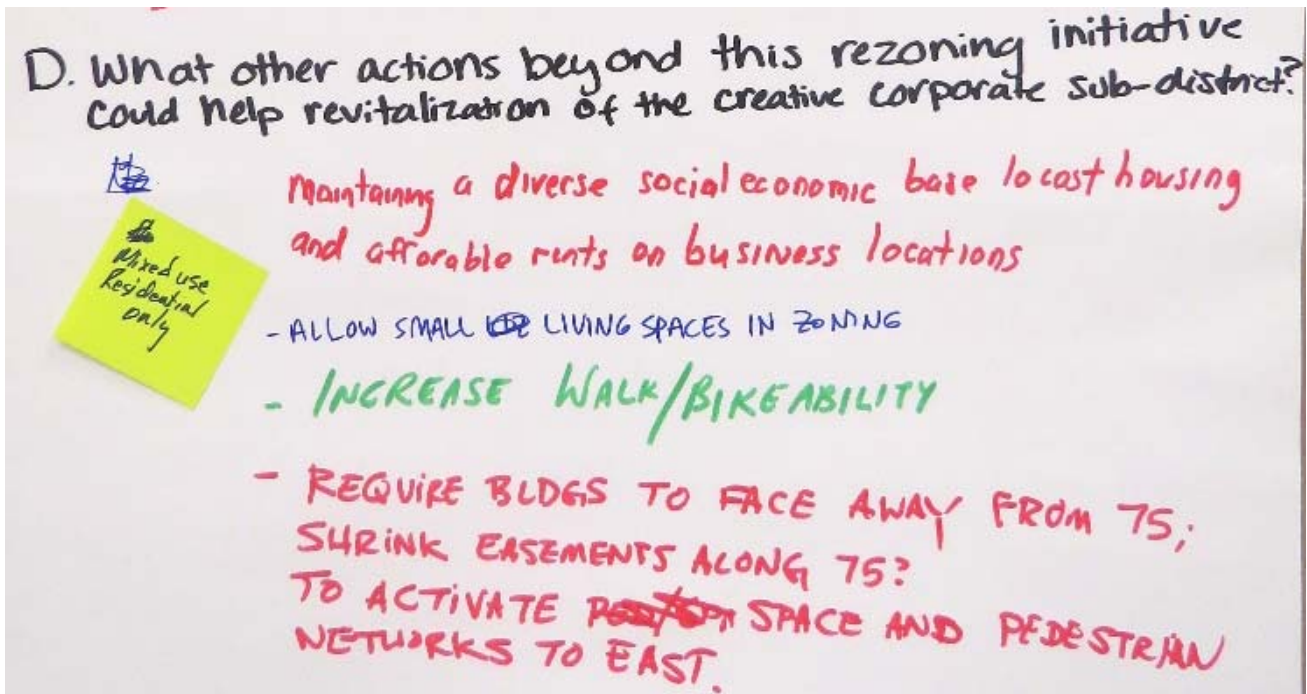 D. What other actions beyond this rezoning initiative
could help revitalization of the creative corporate sub-district?
maintaining a diverse social economic base lo cost housing
and afforable rents on business locations
Mixed use
Residential
only
- ALLOW SMALL LIVING SPACES IN ZONING
- INCREASE WALK/BIKEABILITY
- REQUIRE BLDGS TO FACE AWAY FROM 75;
SHRINK EASEMENTS ALONG 75?
TO ACTIVATE SPACE AND PEDESTRIAN
NETWORKS TO EAST.